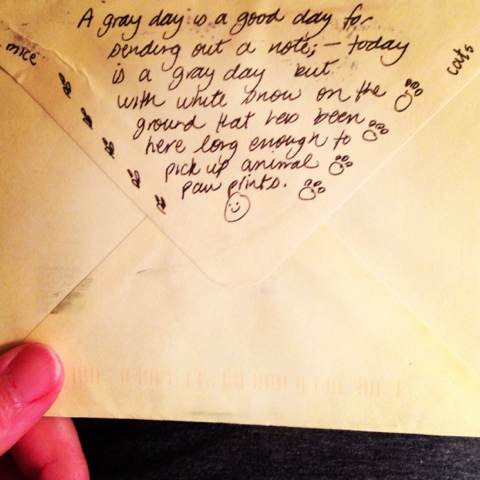 A gray day is a good day for
sending out a note; — today
is a gray day but
with white snow on the
ground that has been
here long enough to
pick up animal
paw prints.
mice
cats